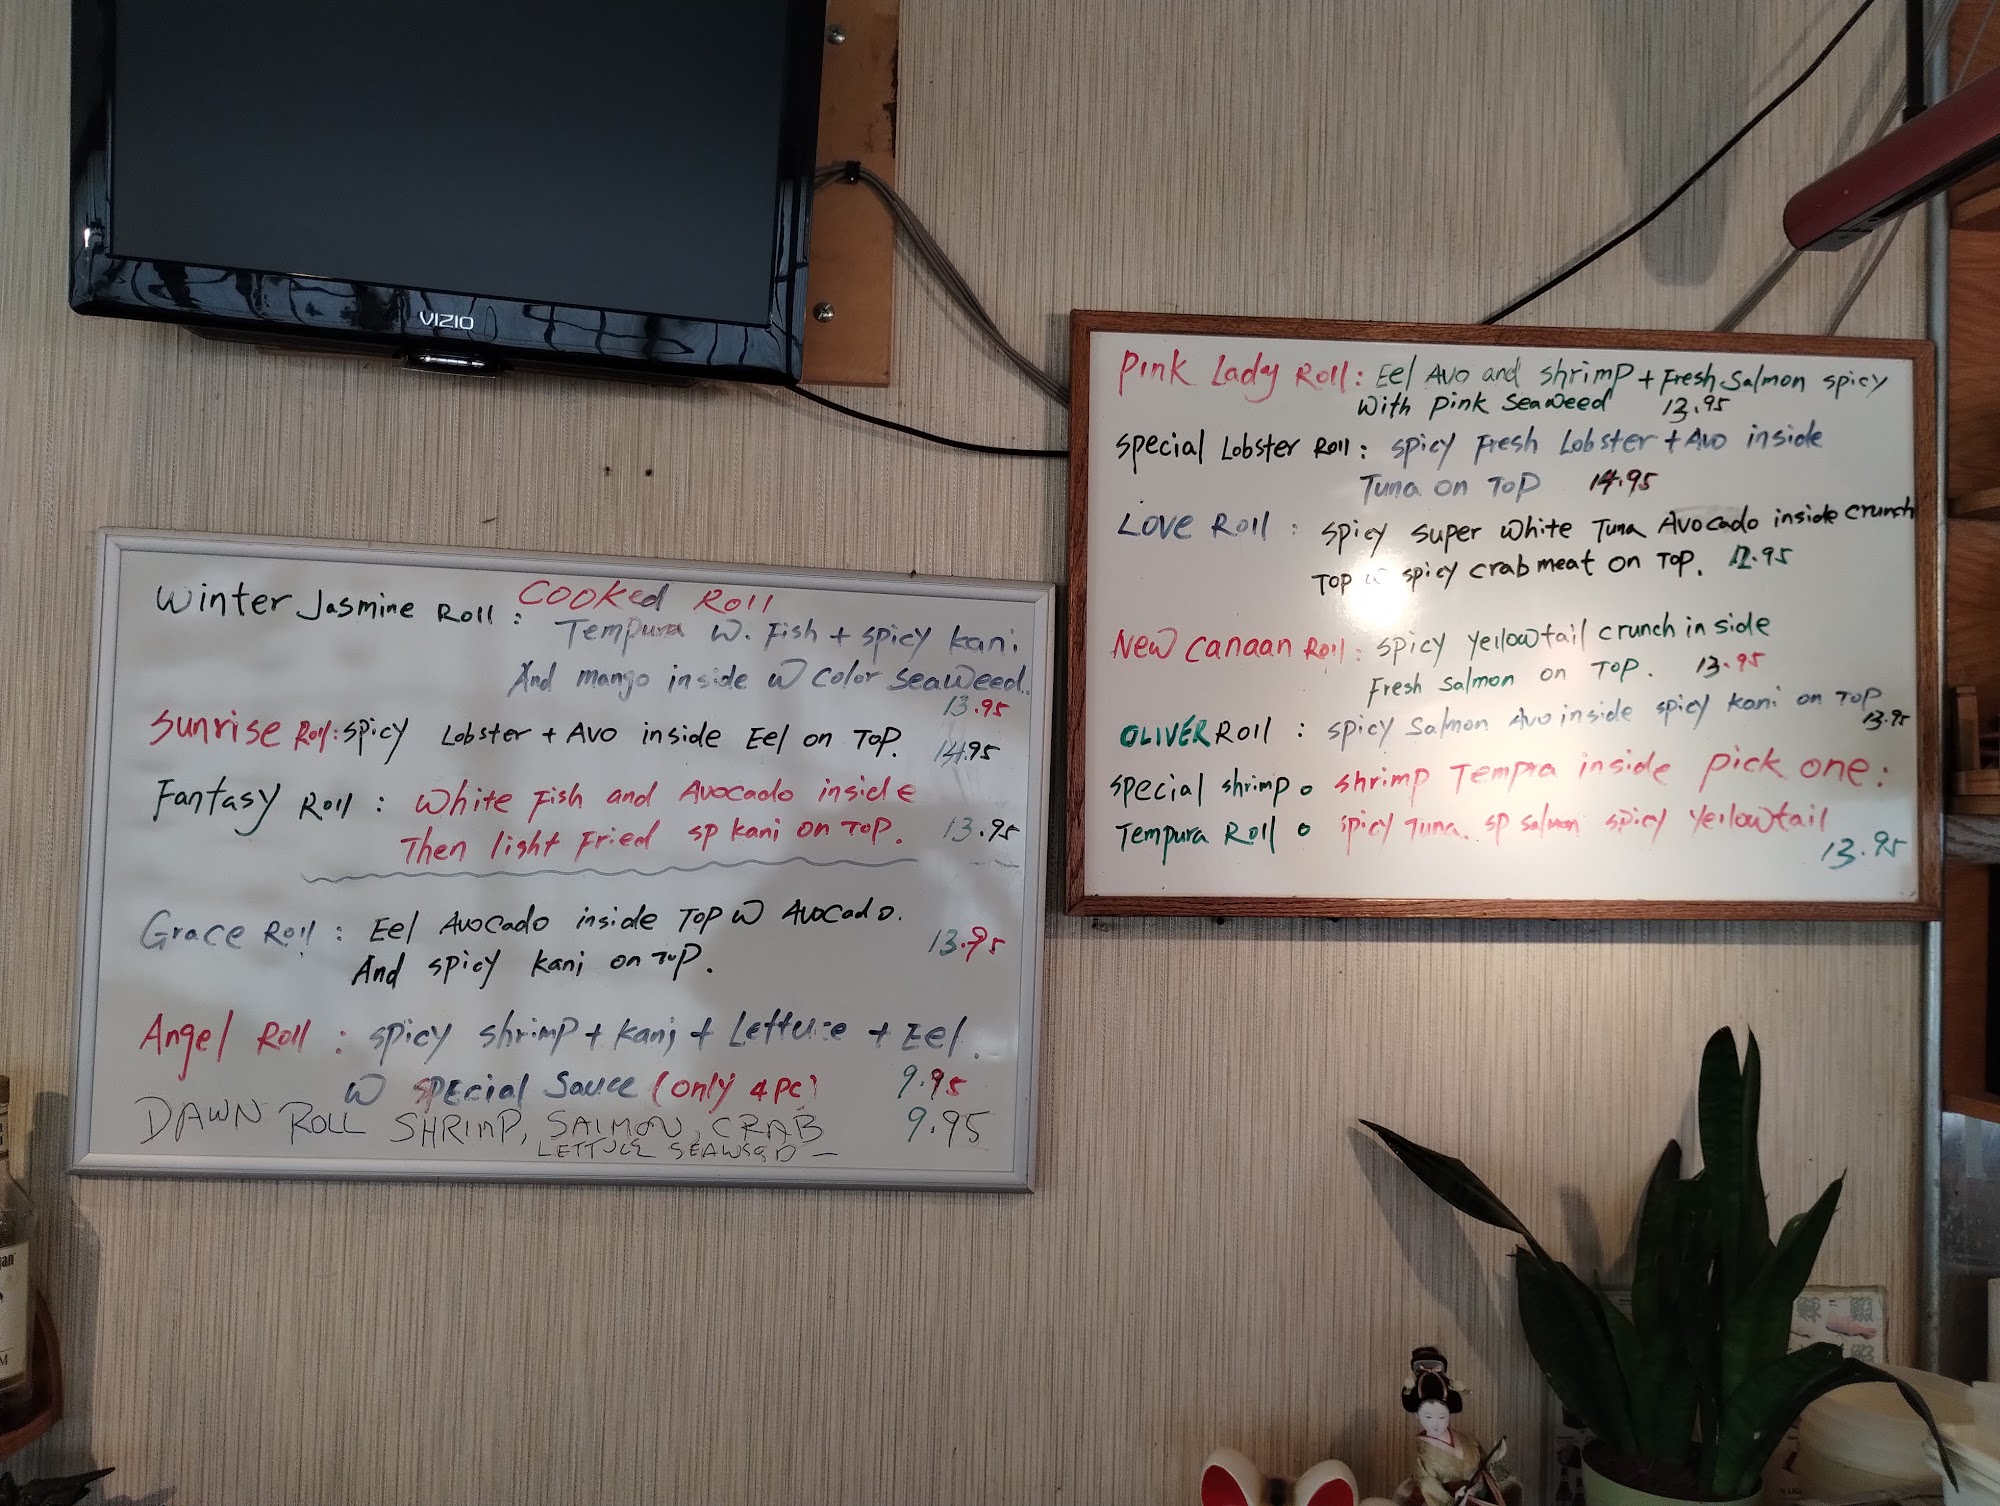 VIZIO
COOKED ROLL
Winter Jasmine Roll :
Tempura W. Fish + spicy kani
And mango inside W color seaweed.
13.95
Sunrise Roll: spicy Lobster + Avo inside Eel on Top. 14.95
Fantasy Roll : White Fish and Avocado inside
Then light Fried sp kani on Top. 13.95
Grace Roll : Eel Avocado inside Top W Avocado.
And spicy kani on Top. 13.95
Angel Roll : spicy shrimp + kani + Lettuce + Eel.
W SPEcial Sauce (only 4 pc) 9.95
DAWN ROLL SHRIMP, SALMON, CRAB 9.95
LETTUCE SEAWEED -
Pink Lady Roll: Eel Avo and shrimp + Fresh Salmon spicy
With Pink Seaweed 13.95
Special Lobster Roll : spicy Fresh Lobster + Avo inside
Tuna on Top 14.95
Love Roll : spicy super white Tuna Avocado inside crunch
Top W spicy crab meat on Top. 12.95
New Canaan Roll: spicy Yellowtail crunch inside
Fresh Salmon on Top. 13.95
OLIVER Roll : spicy Salmon Avo inside spicy kani on Top
13.95
special shrimp o shrimp Tempra inside pick one:
Tempura Roll o spicy Tuna. sp salmon spicy Yellowtail
13.95